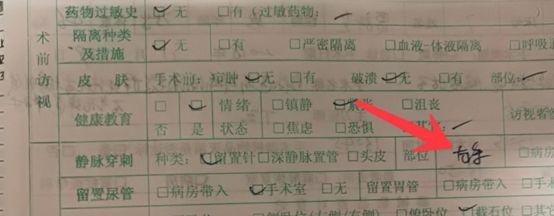 药物过敏史 ☑无 □有(过敏药物:
术前访视
隔离种类及措施 ☑无 □有 □严密隔离 □血液-体液隔离 □呼吸道
皮 肤 手术前:瘀肿 ☑无 □有 破溃 ☑无 □有 部位:
健康教育 □否 ☑是 情绪状态 □镇静 ☑紧张 □沮丧
□焦虑 □恐惧 访视者签
静脉穿刺 种类:☑留置针 □深静脉置管 □头皮 部位 □病房
留置尿管 □病房带入 ☑手术室 □无 留置胃管 □病房带入 □手术
□俯卧位 ☑截石位